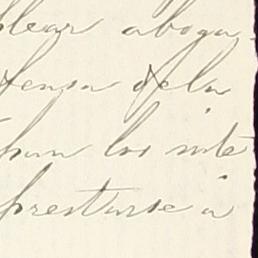 plear aboga-
fensa de la
los inte
prestarse a